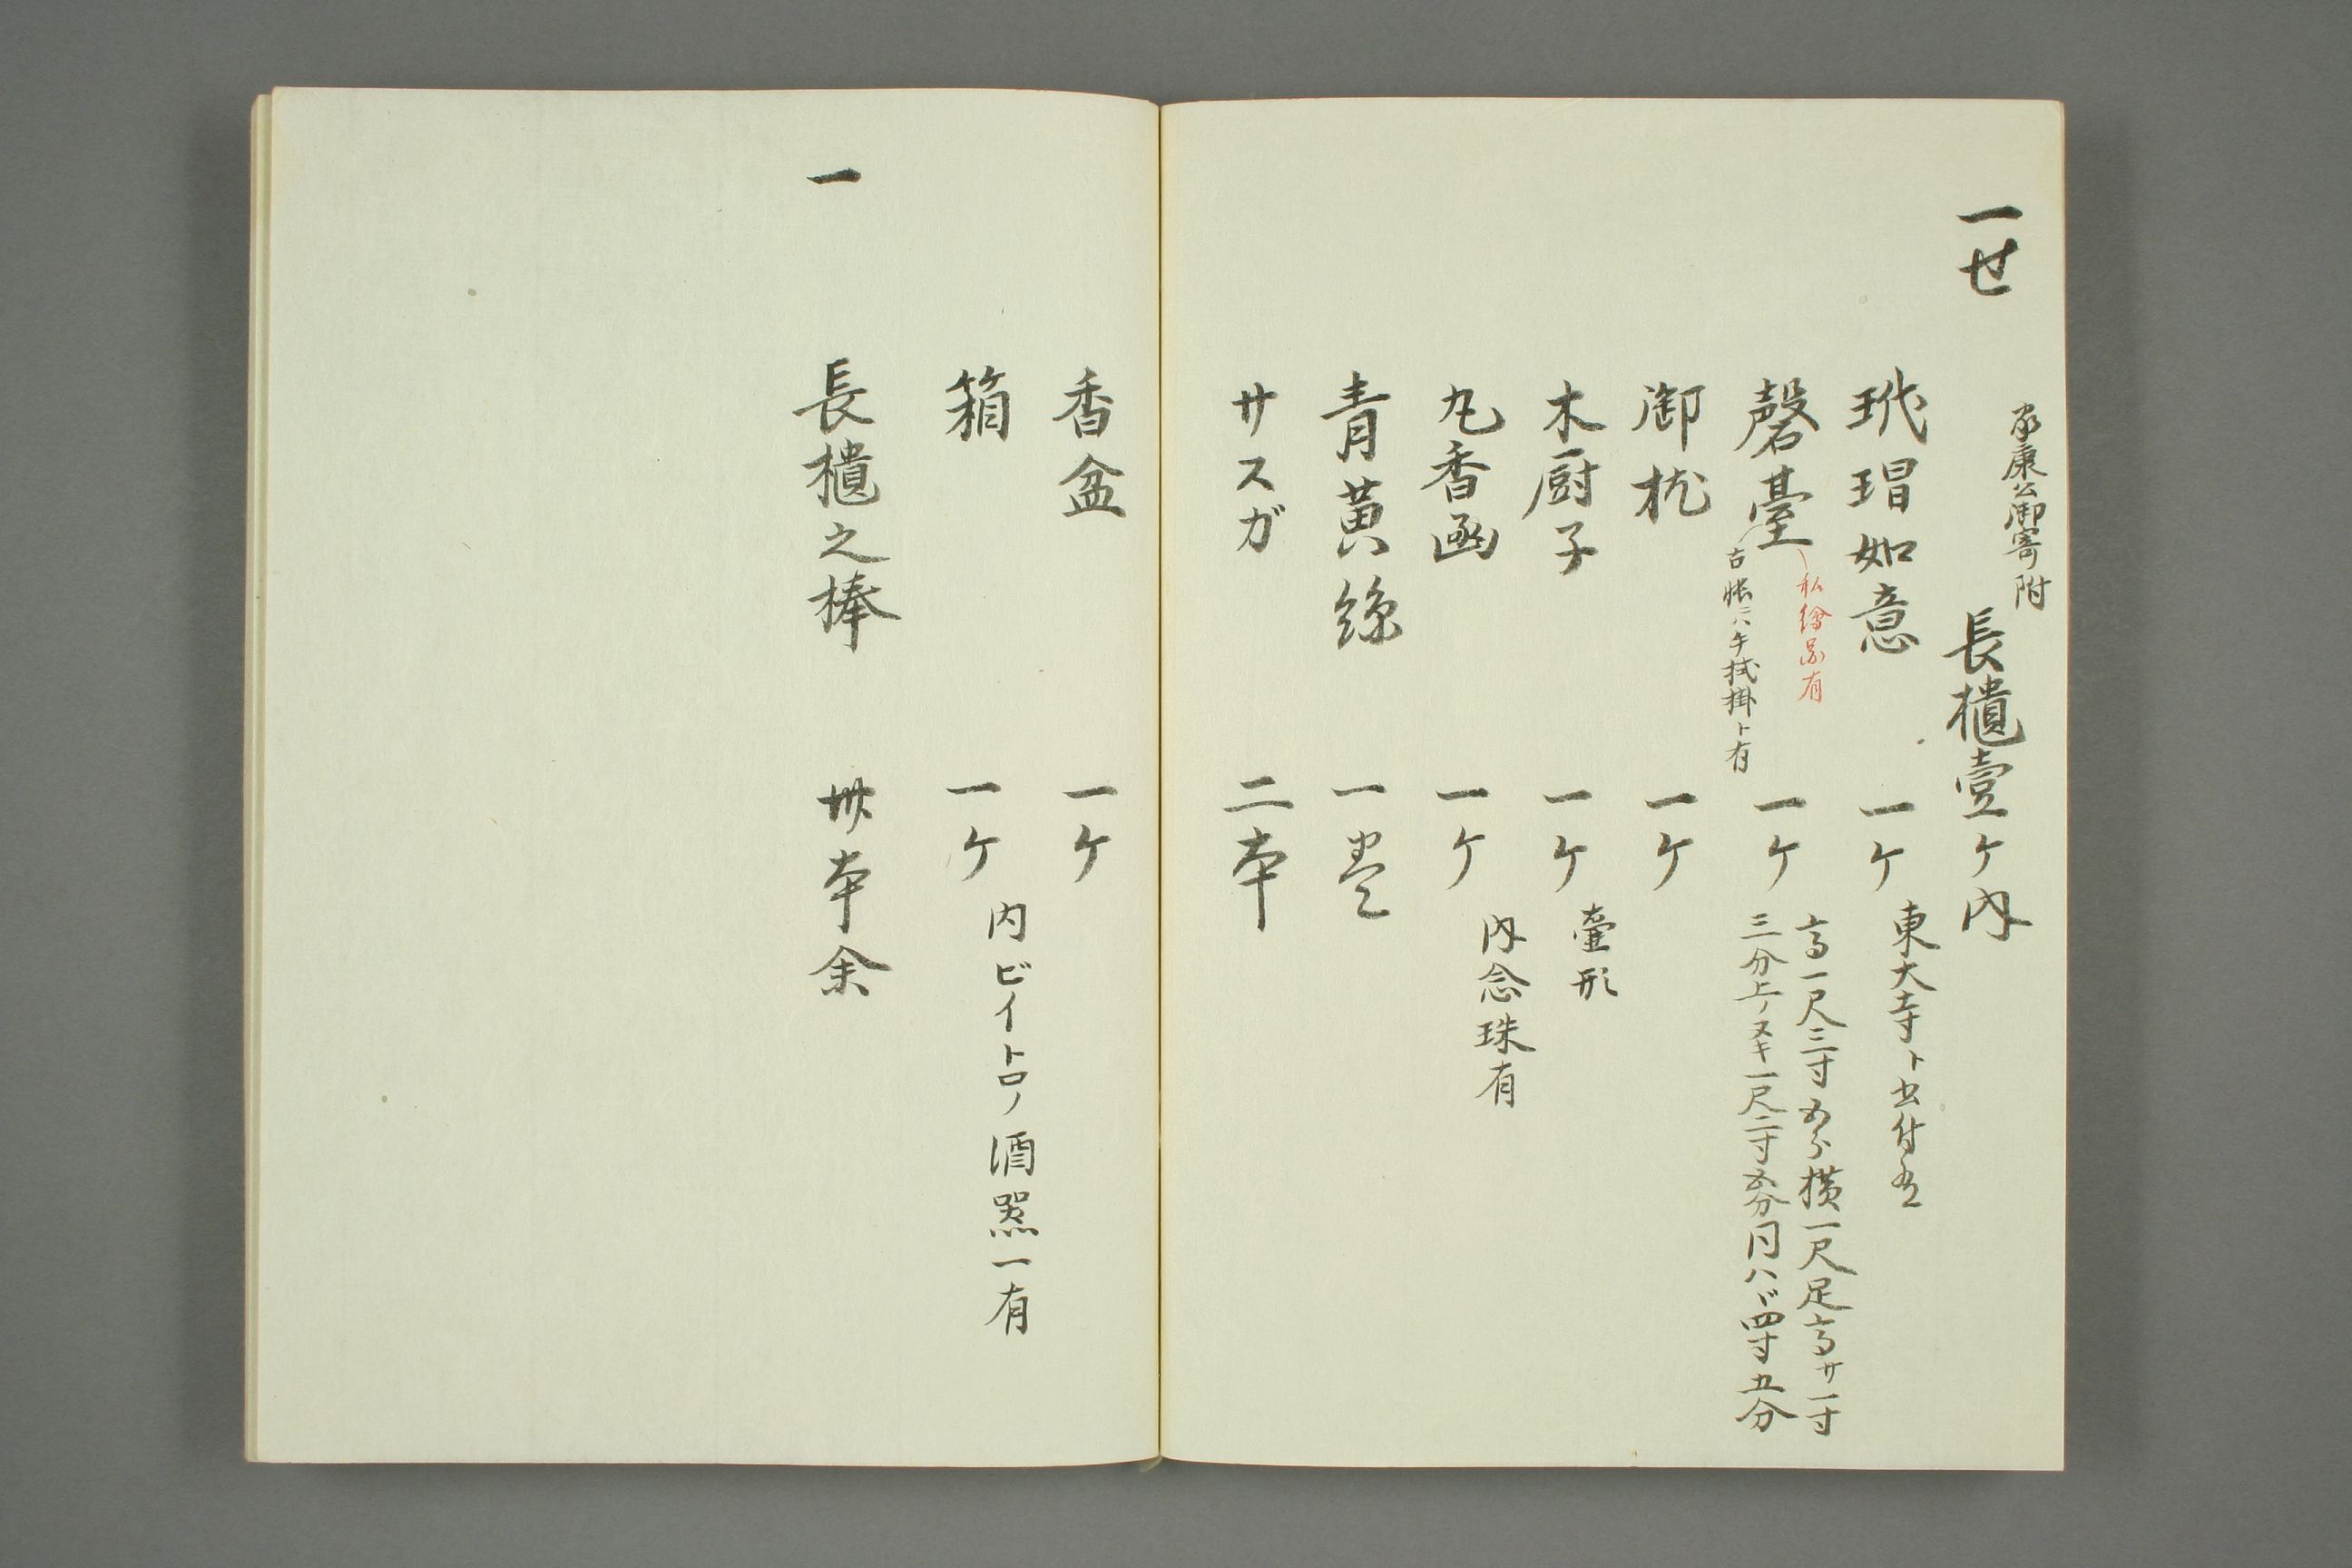 一せ
家康公御寄附
長櫃壹ケ内
玳瑁如意 一ケ 東大寺ト書付有
磬臺 一ケ
私繪図有
古帳ニハ手拭掛ト有
高一尺三寸五分横一尺足高サ一寸
三分上ノヌキ一尺二寸五分同ハヾ四寸五分
御枕 一ケ
木厨子 一ケ 臺形
丸香函 一ケ 内念珠有
青黄綟 一巻
サスガ 二本
香盆 一ケ
箱 一ケ 内ビイトロノ酒器一有
一 長櫃之棒 卅本余